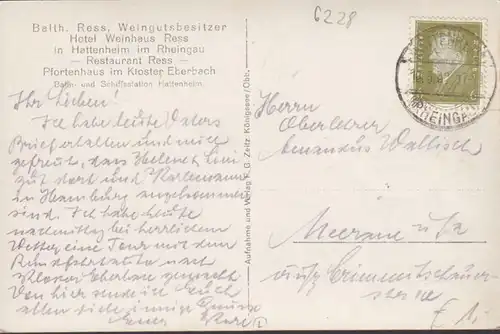 Balth. Ress, Weingutsbesitzer
Hotel Weinhaus Ress
in Hattenheim im Rheingau
— Restaurant Ress —
Pfortenhaus im Kloster Eberbach
Bahn- und Schiffsstation Hattenheim.
6228
Ihr Lieben!
Ich habe heute Vaters
Brief erhalten und mich
gefreut, dass
gut dort und
in Hamburg angekommen
sind. Ich habe heute
nachmittag bei herrlichem
Wetter eine Tour mit dem
Rundfahrtauto nach
Kloster Eberbach gemacht.
Von hier sende ich Euch
allen die innigsten Grüsse
Euer
Aufnahme und Verlag F. G. Zeitz, Königssee/Obb.
RHEINGAU
Herrn
Oberlehrer
Amandus Wallisch
Meerane i/Sa
Crimmitschauer